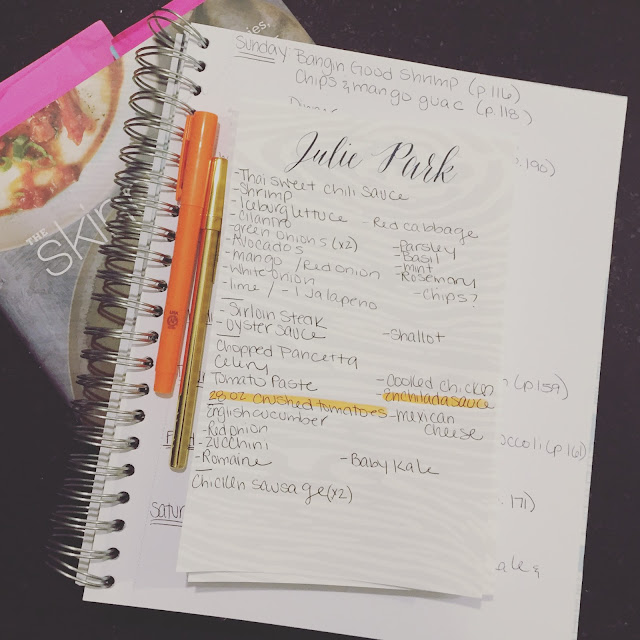 Sunday: Bangin Good Shrimp (p.116)
Chips & mango guac (p.118)
Dinner
p.190)
Julie Park
-Thai sweet chili sauce
-Shrimp
-Iceburg lettuce -Red cabbage
-cilantro
-green onions (x2) -Parsley
-Avocados -Basil
-mango / Red onion -mint
-white onion -Rosemary
-lime / -1 Jalapeno -Chips?
-Sirloin Steak
-Oyster sauce -Shallot
Chopped Pancetta
Celery
Tomato Paste -Cooked Chicken
28 oz crushed tomatoes enchilada sauce
English cucumber -mexican
-Red onion cheese
-zucchini
-Romaine -Baby Kale
Chicken sausage (x2)
(p.159)
occoli (p.161)
. 171)
ale &
Satur
THE
skin